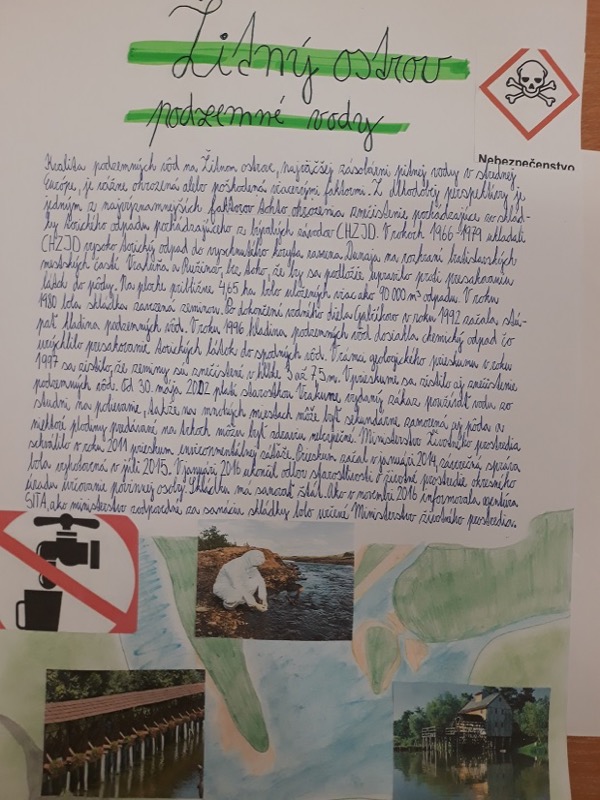 Žitný ostrov
podzemné vody
Nebezpečenstvo
Kvalita podzemných vôd na Žitnom ostrove, najväčšej zásobárni pitnej vody v strednej
Európe, je vážne ohrozená alebo poškodená viacerými faktormi. Z dlhodobej perspektívy je
jedným z najvýznamnejších faktorov tohto ohrozenia znečistenie pochádzajúce zo sklád-
ky toxického odpadu pochádzajúceho z bývalých závodov CHZJD. V rokoch 1966-1979 ukladali
CHZJD vysoko toxický odpad do vyschnutého koryta ramena Dunaja na rozhraní bratislavských
mestských častí Vrakuňa a Ružinov, bez toho, že by sa podložie upravilo proti presakovaniu
látok do pôdy. Na ploche približne 4,65 ha bolo uložených viac ako 90 000 m³ odpadu. V roku
1980 bola skládka zavezená zeminou. Po dokončení vodného diela Gabčíkovo v roku 1992 začala stú-
pať hladina podzemných vôd. V roku 1996 hladina podzemných vôd dosiahla chemický odpad čo
urýchlilo presakovanie toxických látok do spodných vôd. V rámci geologického prieskumu v roku
1997 sa zistilo, že zeminy sú znečistené v hĺbke 3 až 7,5 m. V prieskume sa zistilo aj znečistenie
podzemných vôd. Od 30. mája 2002 platí starostkou Vrakune vydaný zákaz používať vodu zo
studní na polievanie, takže na mnohých miestach môže byť sekundárne zamorená aj pôda a
niektoré plodiny predávané na trhoch môžu byť zdraviu nebezpečné. Ministerstvo životného prostredia
schválilo v roku 2011 prieskum environmentálnej záťaže. Prieskum začal v januári 2014, záverečná správa
bola vyhotovená v júli 2015. V januári 2016 ukončil odbor starostlivosti o životné prostredie okresného
úradu určovanie povinnej osoby. Skládku má sanovať štát. Ako v novembri 2016 informovala agentúra
SITA, ako ministerstvo zodpovedné za sanáciu skládky bolo určené Ministerstvo životného prostredia.